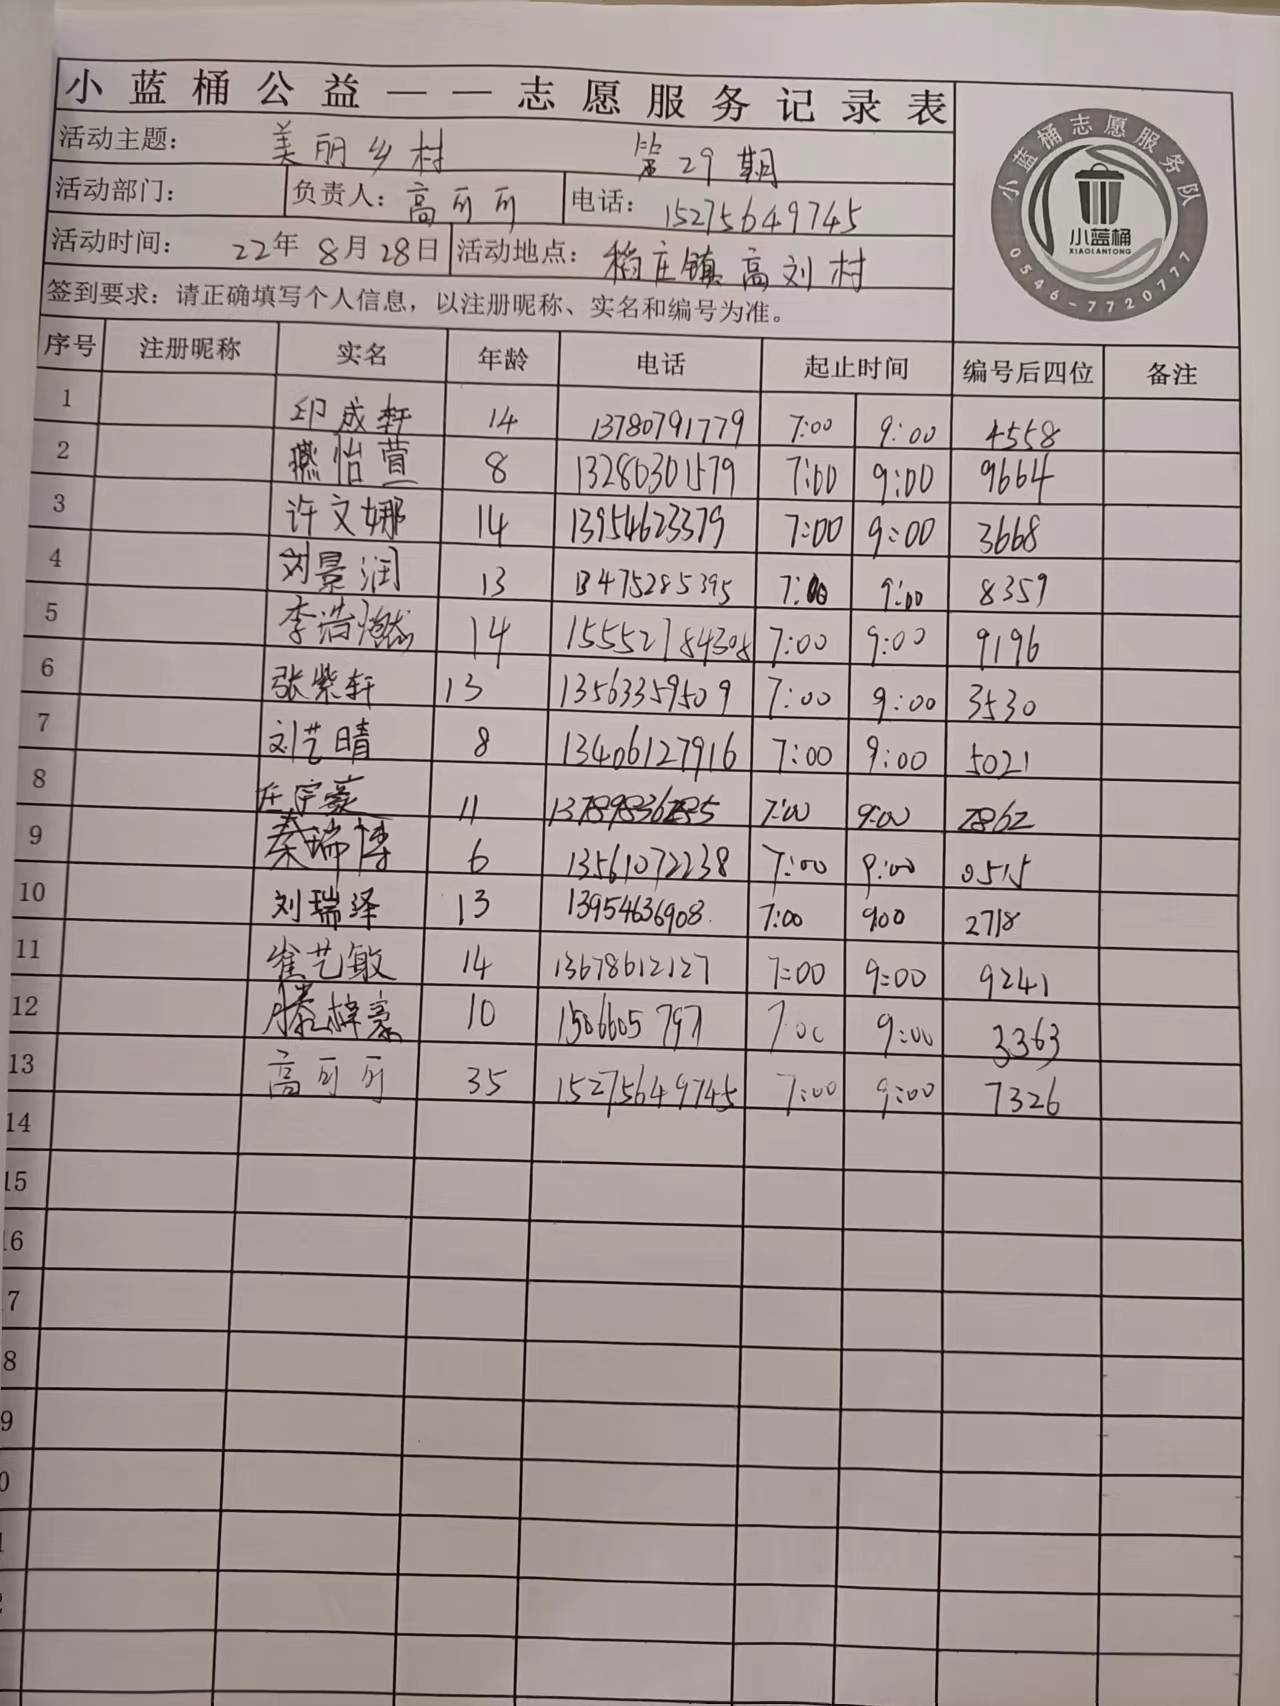 小蓝桶公益——志愿服务记录表
活动主题： 美丽乡村 第29期
活动部门： 负责人：高可可 电话：15275649745
活动时间： 22年8月28日 活动地点：稻庄镇高刘村
签到要求：请正确填写个人信息，以注册昵称、实名和编号为准。
小蓝桶志愿服务队
小蓝桶
XIAOLANTONG
0546-7720777
序号 注册昵称 实名 年龄 电话 起止时间 编号后四位 备注
1 印成轩 14 13780791779 7:00 9:00 4558
2 燕怡萱 8 13280301579 7:00 9:00 9664
3 许文娜 14 13954623379 7:00 9:00 3668
4 刘景润 13 13475285395 7:00 9:00 8359
5 李浩燃 14 15552784308 7:00 9:00 9196
6 张紫轩 13 13563359509 7:00 9:00 3530
7 刘艺晴 8 13406127916 7:00 9:00 5021
8 庄宇豪 11 7:00 9:00 2862
9 秦瑞博 6 13561072238 7:00 9:00 0515
10 刘瑞泽 13 13954636908 7:00 9:00 2718
11 崔艺敏 14 13678612127 7:00 9:00 9241
12 滕梓豪 10 1506605797 7:00 9:00 3363
13 高可可 35 15275649745 7:00 9:00 7326
14
15
16
7
8
9
0
1
2